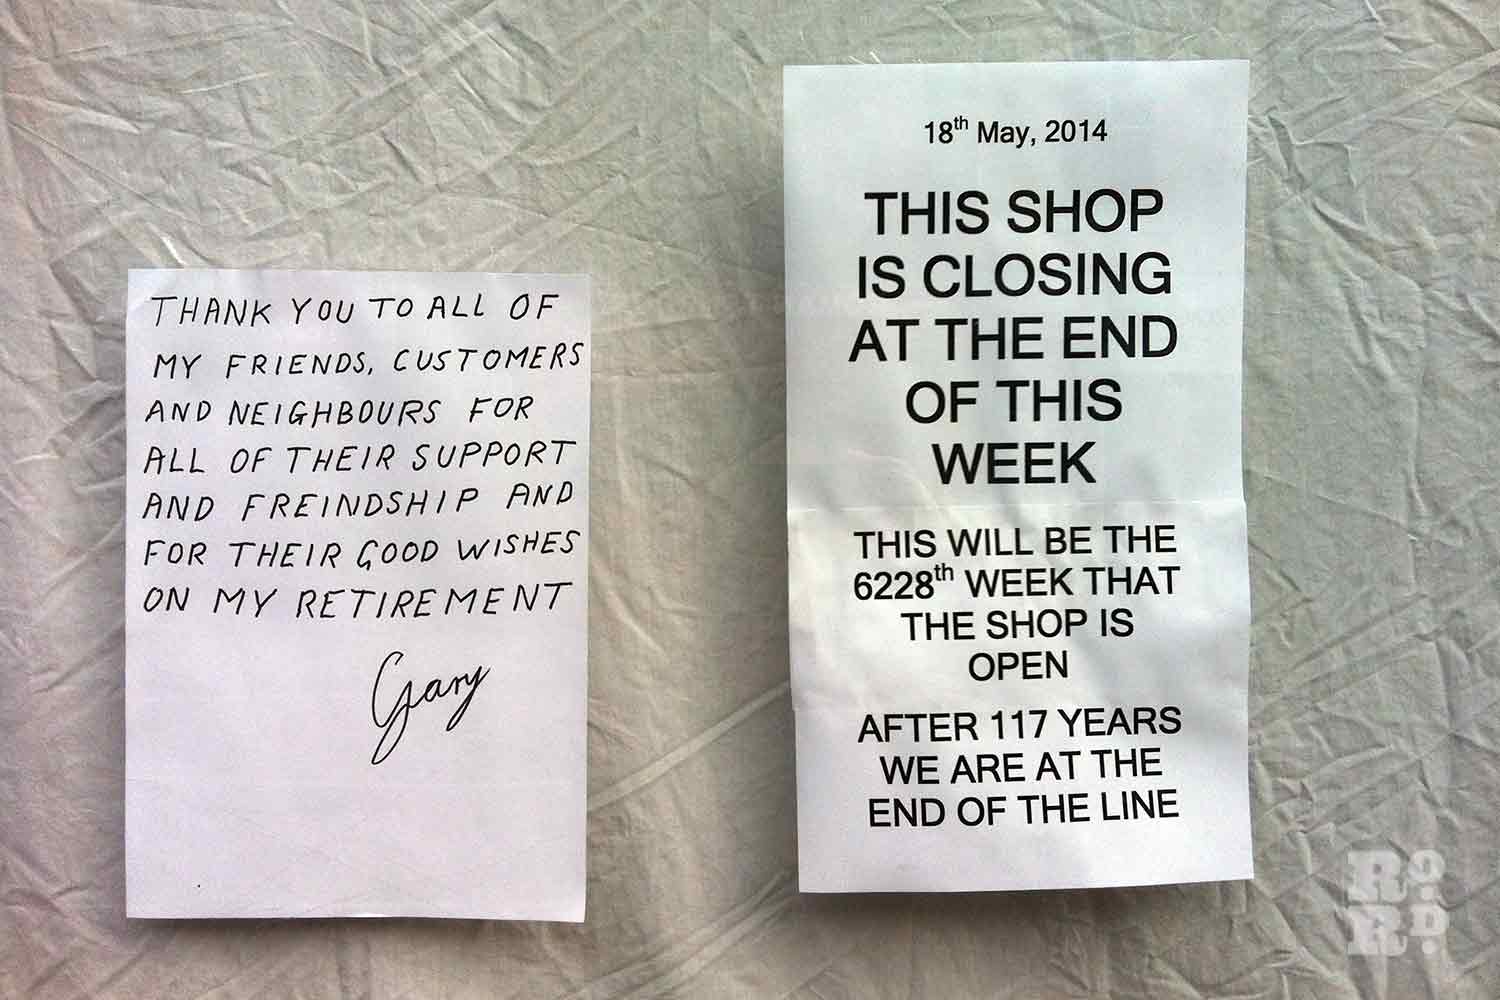 THANK YOU TO ALL OF
MY FRIENDS, CUSTOMERS
AND NEIGHBOURS FOR
ALL OF THEIR SUPPORT
AND FREINDSHIP AND
FOR THEIR GOOD WISHES
ON MY RETIREMENT
Gary
18th May, 2014
THIS SHOP
IS CLOSING
AT THE END
OF THIS
WEEK
THIS WILL BE THE
6228th WEEK THAT
THE SHOP IS
OPEN
AFTER 117 YEARS
WE ARE AT THE
END OF THE LINE
Ro
RD.